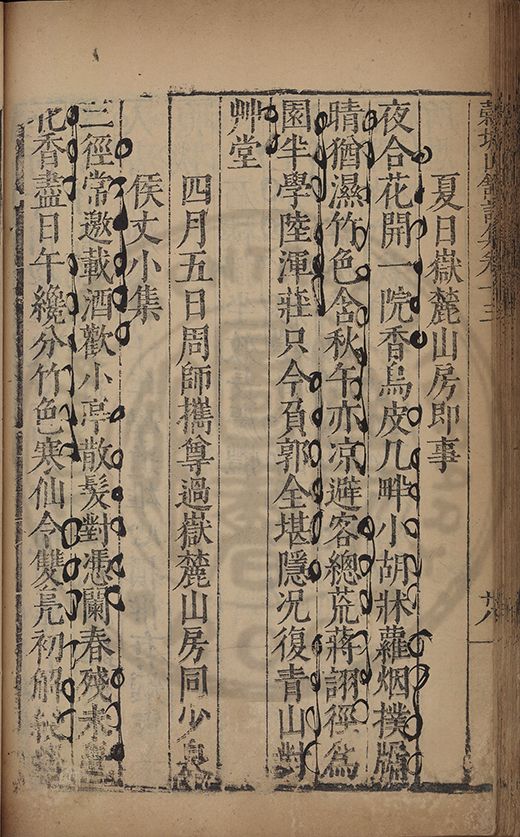 詩集卷十三
廿八
夏日嶽麓山房即事
夜合花開一院香烏皮几畔小胡牀蘿烟撲牖
晴猶濕竹色含秋午亦凉避客總荒蔣詡徑為
園半學陸渾莊只今負郭全堪隱况復青山對
艸堂
四月五日周師攜尊過嶽麓山房同少泉
侯丈小集
三徑常邀載酒歡小亭散髮對憑闌春殘未覺
花香盡日午纔分竹色寒仙令雙鳧初解